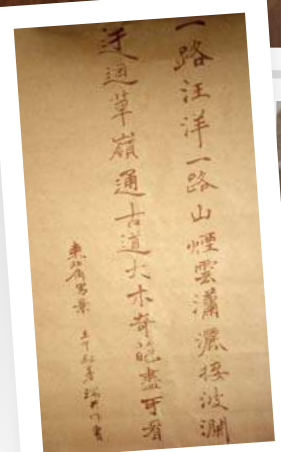 一路汪洋一路山煙雲瀟灑接波瀾
迂迴草嶺通古道大木奇葩盡可看
東北角寫景